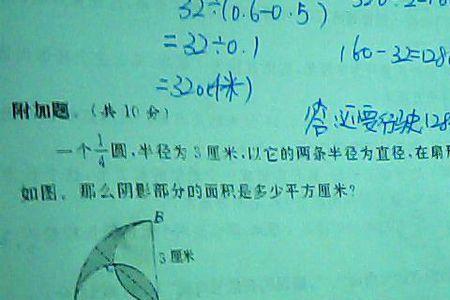 32÷(0.6-0.5)
=32÷0.1
=320(千米)
160-32=128
附加题.(共 10 分)
答:还要行驶128
一个1/4圆,半径为 3 厘米,以它的两条半径为直径,在扇形
如图。那么阴影部分的面积是多少平方厘米?
B
3 厘米